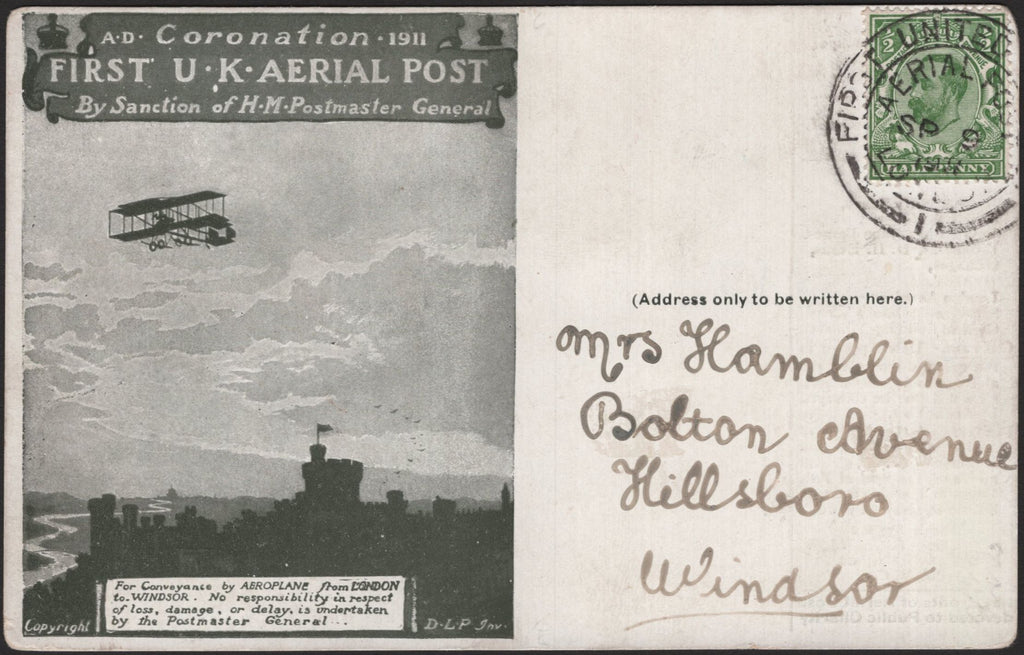 A·D· Coronation · 1911
FIRST U·K·AERIAL POST
By Sanction of H·M·Postmaster General
For Conveyance by AEROPLANE from LONDON
to WINDSOR. No responsibility in respect
of loss, damage, or delay, is undertaken
by the Postmaster General...
Copyright
D·L·P Inv.
FIRST UNITED
AERIAL
SP
1
HALFPENNY
(Address only to be written here.)
Mrs Hamblin
Bolton Avenue
Hillsboro
Windsor